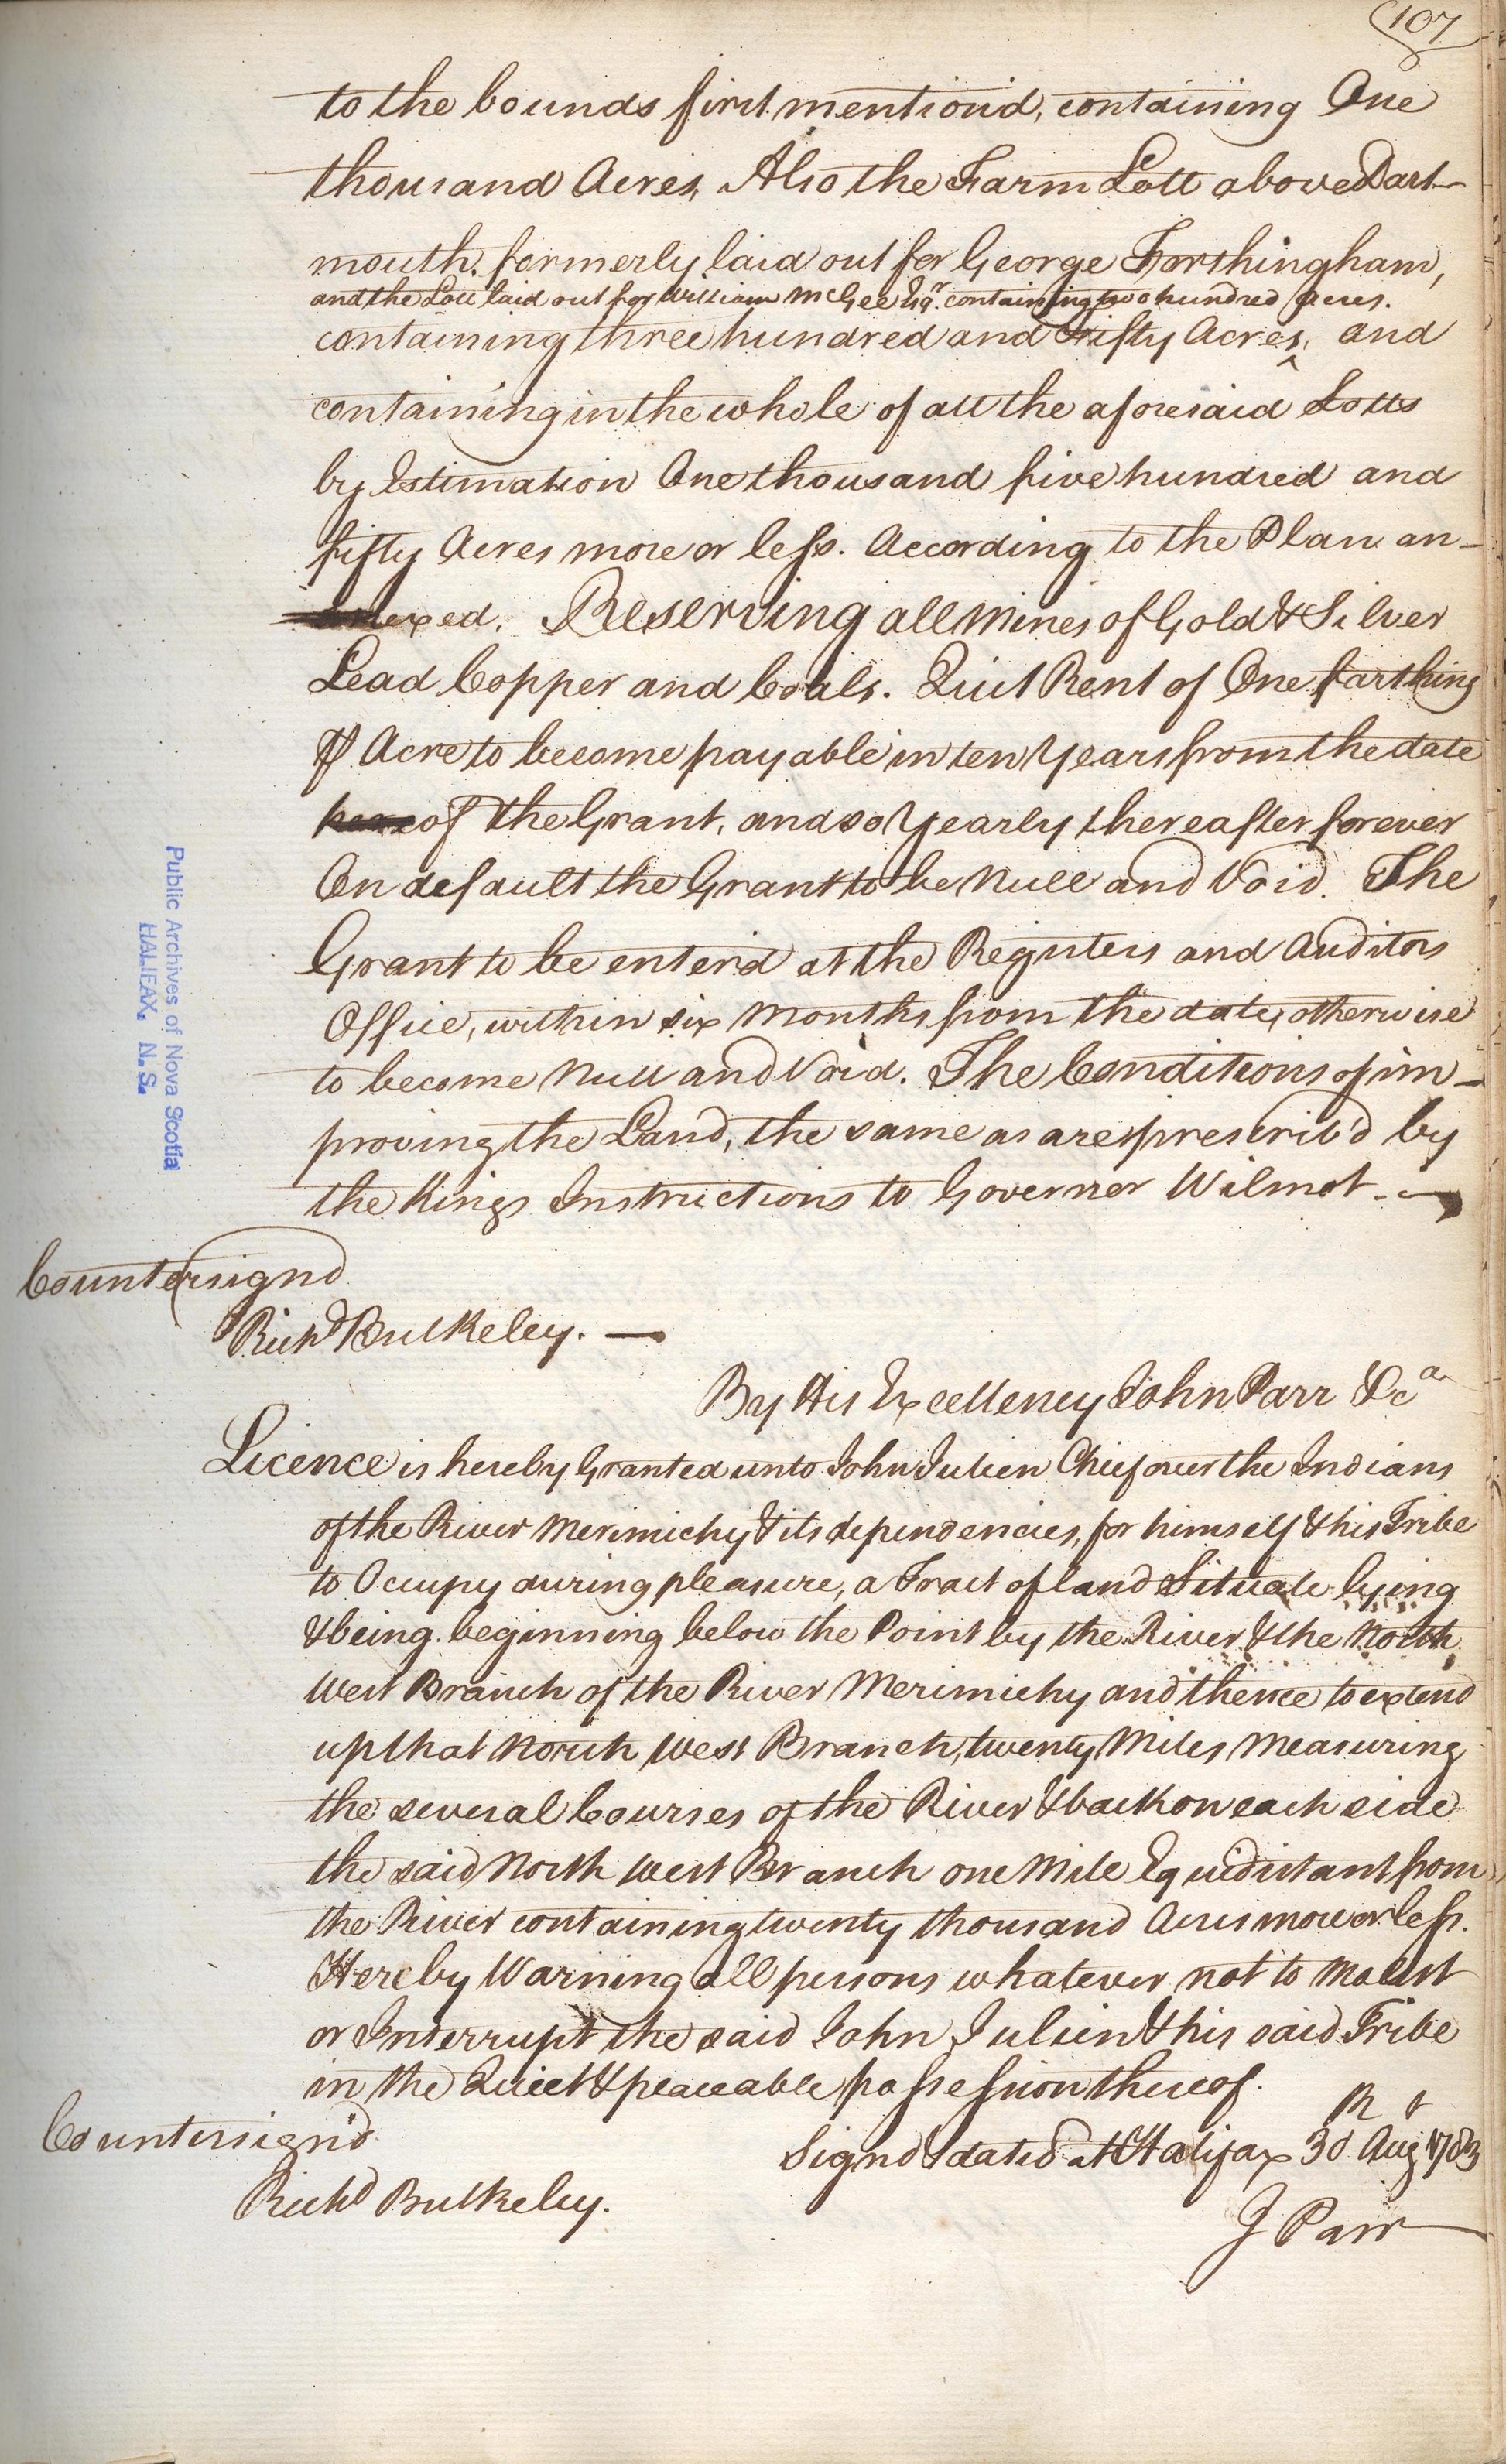 107
to the bounds first mention'd, containing One
thousand Acres, Also the Farm Lott above Dart-
mouth, formerly laid out for George Forthingham,
and the Lott laid out for William McGee Esqr. containing two hundred Acres.
containing three hundred and Fifty Acres, ^ and
containing in the whole of all the aforesaid Lotts
by Estimation One thousand five hundred and
fifty Acres more or less. According to the Plan an-
nexed. Reserving all Mines of Gold & Silver
Lead Copper and Coals. Quit Rent of One farthing
⅌ Acre to become payable in ten Years from the date
of the Grant, and so Yearly thereafter forever
On default the Grant to be Null and Void. The
Grant to be enter'd at the Registers and Auditors
Office, within six Months from the date, otherwise
to become Null and Void. The Conditions of im-
proving the Land, the same as are prescrib'd by
the Kings Instructions to Governor Wilmot.
Countersignd
Richd Bulkeley. —
By His Excellency John Parr &ca
Licence is hereby Granted unto John Julien Chief over the Indians
of the River Merimichy & its dependencies, for himself & his Tribe
to Occupy during pleasure, a Tract of land Situate lying
& being. beginning below the Point by the River & the North
West Branch of the River Merimichy and thence to extend
up that North West Branch, twenty Miles Measuring
the several Courses of the River & back on each side
the said North West Branch one Mile Equidistant from
the River containing twenty thousand Acres more or less.
Hereby Warning all persons whatever not to Molest
or Interrupt the said John Julien & his said Tribe
in the Quiet & peaceable possession thereof.
Countersign'd
Signd & dated at Halifax 30 Aug 1783
Richd Bulkeley.
J Parr
Public Archives of Nova Scotia
HALIFAX, N.S.